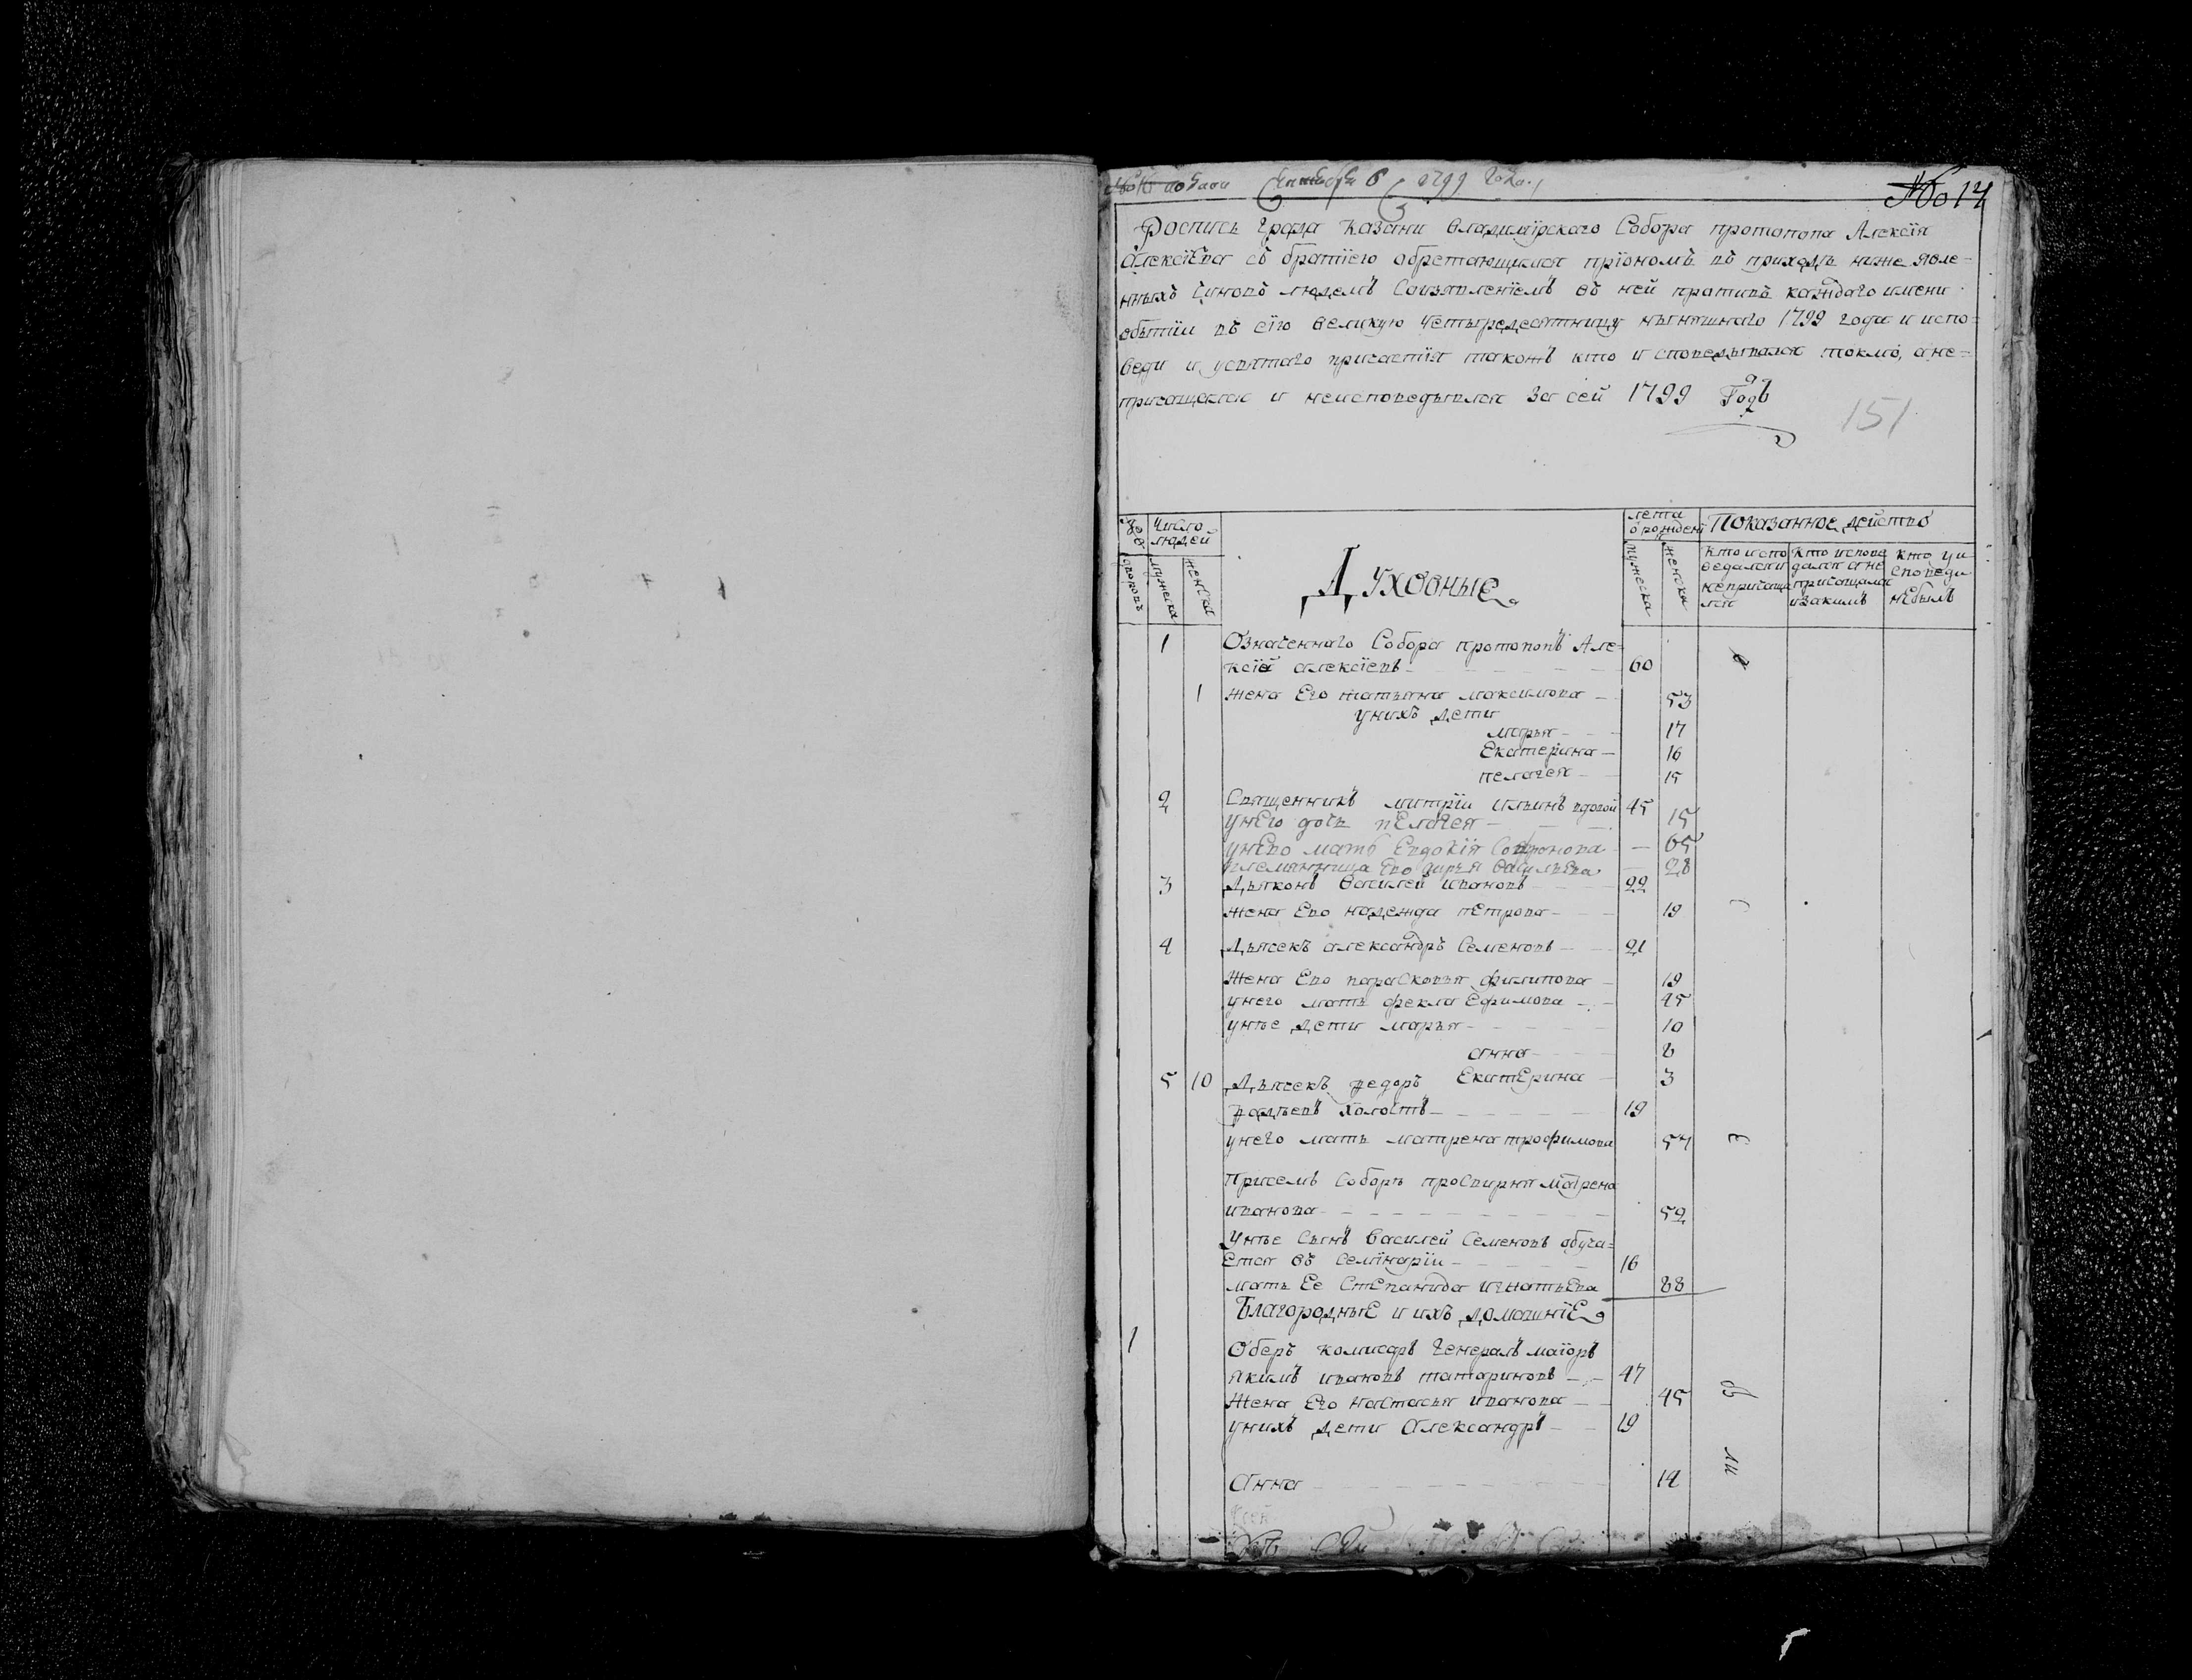 Сентября 6 1799 года
№ 14
Роспись града Казани Владимїрскаго Собора протопопа Алексїя
Алексїева съ братїею обретающимся прїономъ въ приходѣ ниже явле-
нныхъ чиновъ людемъ Соизявленїемъ въ ней противъ каждаго имени
обытїи въ сїю великую Четыредесятницу нынѣшнаго 1799 года и испо-
веди и усвятаго причастїя такожъ кто исповедывался токмо, а не-
причащался и неисповедывался за сей 1799 Годъ
151
Число людей
лета о рожденїи
Показанное действо
дворовъ
мужеска
женска
Духовные
мужеска
женска
кто испо
ведался и
непричаща
лся
кто испове
дался а не
причащался
и за кимъ
кто уи
споведи
небылъ
1 Означеннаго Собора протопопъ Але-
ксїй алексїевъ 60
1 Жена Его татьяна максимова 53
унихъ дети
марья 17
Екатерина 16
пелагея 15
2 Священникъ митрїи ильинъ вдовой 45
унего дочь пелагея 15
унево мать Евдокїя Софронова 65
племянница Ево дарья васильева 28
3 Дьяконъ Василей ивановъ 22
Жена Ево надежда петрова 19
4 Дьячекъ александръ Семеновъ 21
Жена Ево парасковья филипова 19
унего мать фекла Ефимова 45
унѣе дети марья 10
анна 8
Екатерина 3
5 10 Дьячекъ федоръ
фадѣевъ холостъ 19
унего мать матрена трофимова 57
Присемъ Соборѣ просвирня матрена
иванова 52
Унѣе Сынъ Василей Семеновъ обуча-
ется въ Семїнарїи 16
мать Ее Степанида игнатьева 88
Благородные и ихъ домашнїе
1 Оберъ комисаръ генералъ маїоръ
якимъ ивановъ татариновъ 47
Жена Его настасья иванова 45
унихъ дети Александръ 19
Анна 14